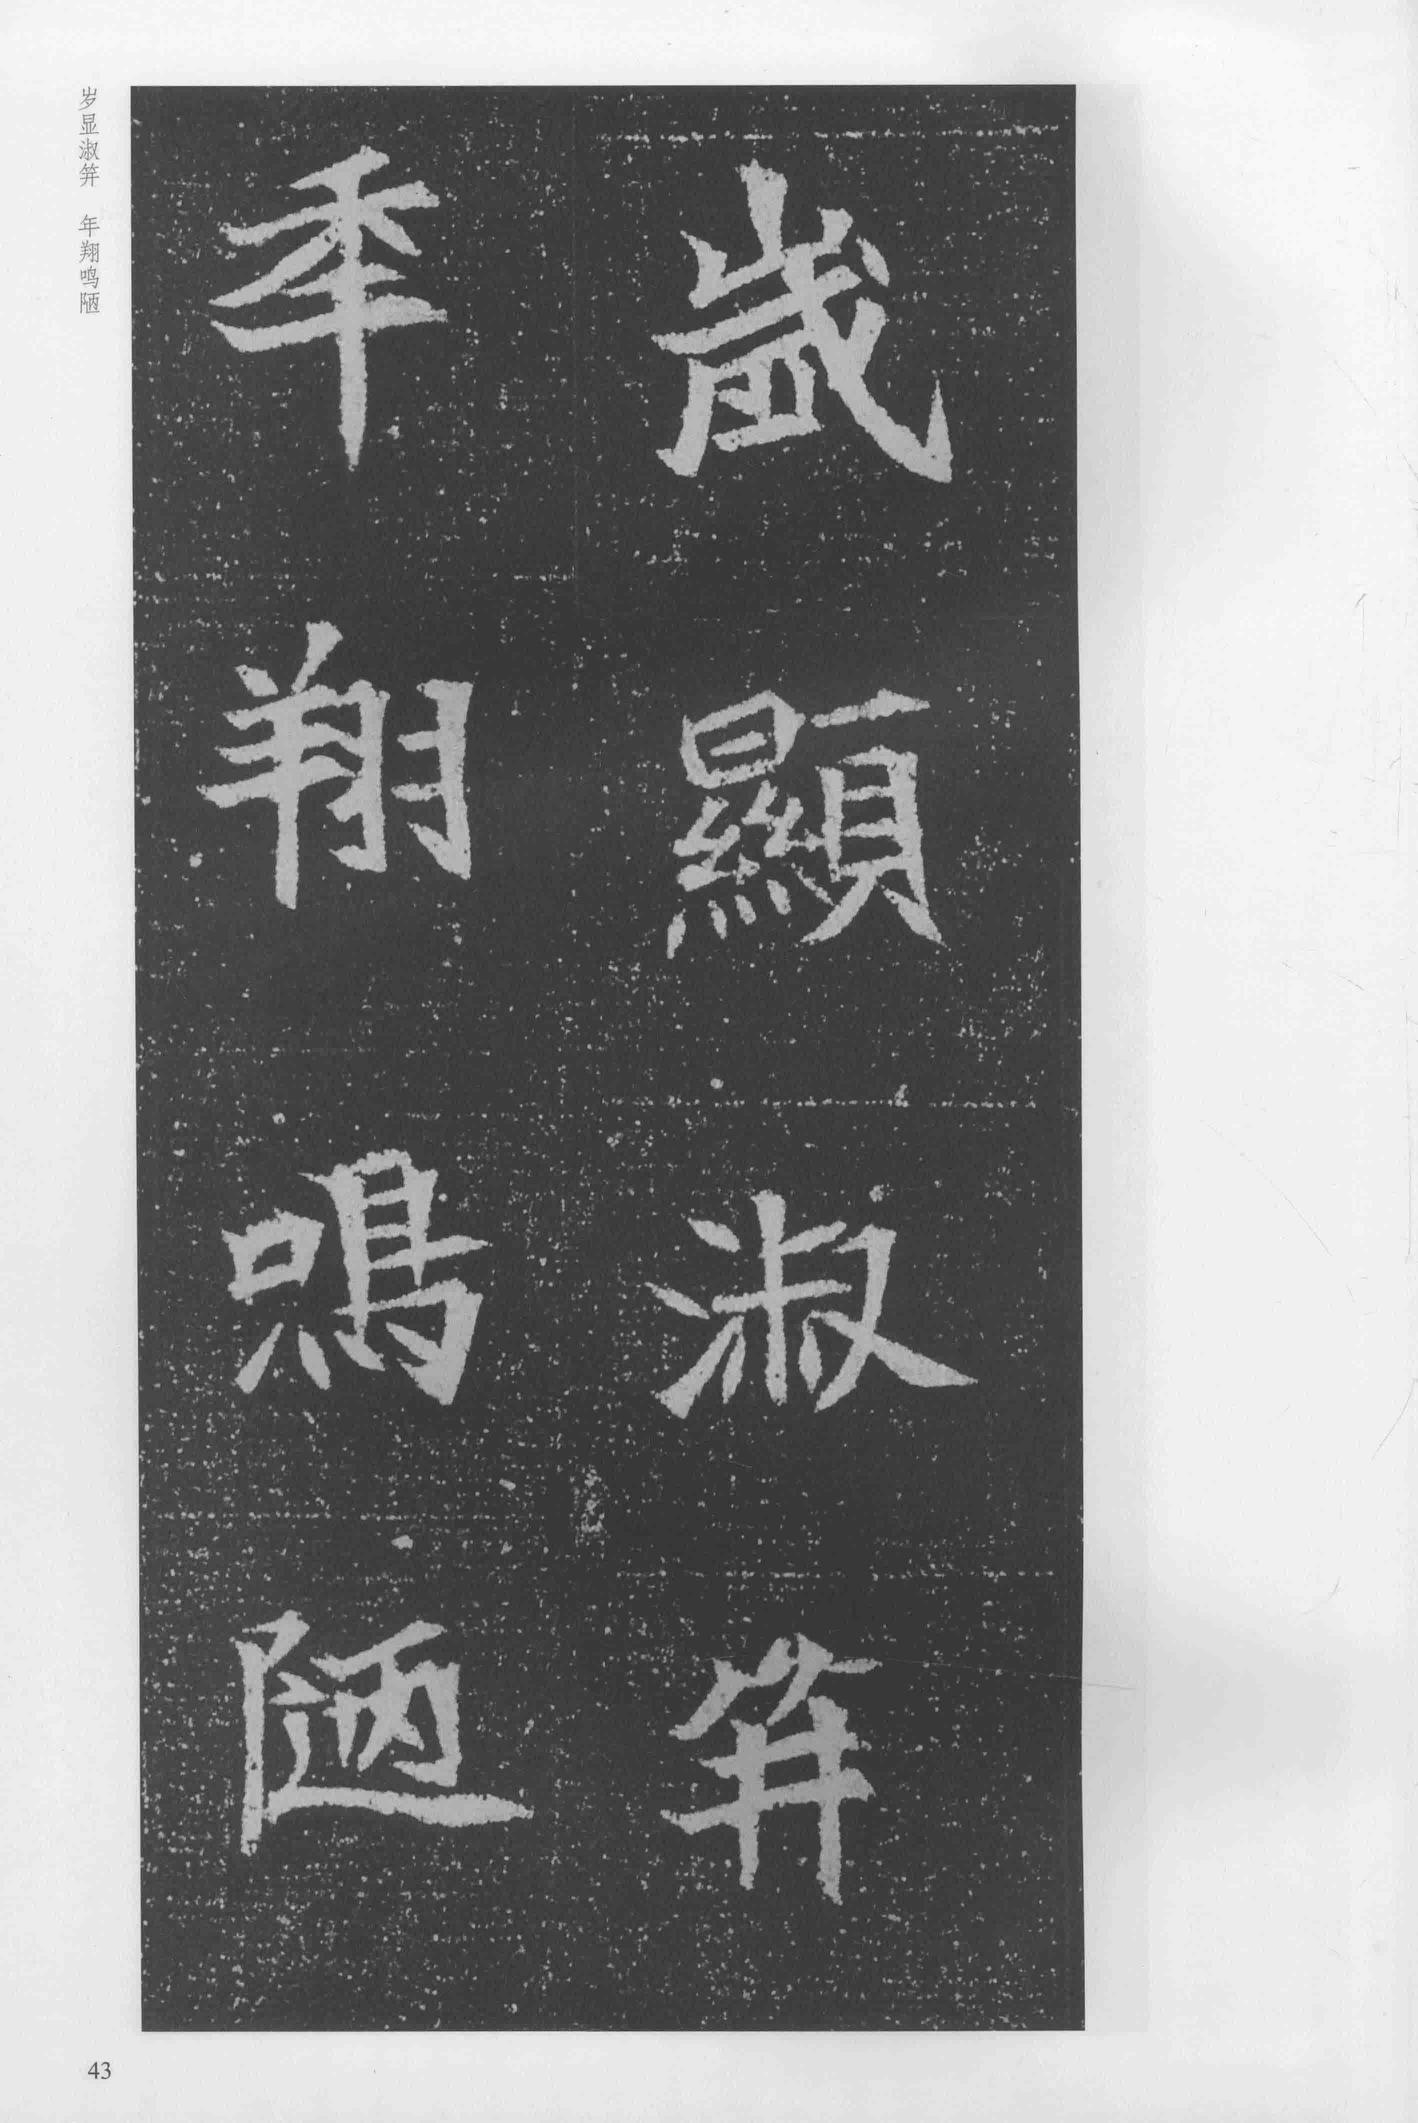 歲顯淑笄
年翔鳴陋
岁显淑笄 年翔鸣陋
43